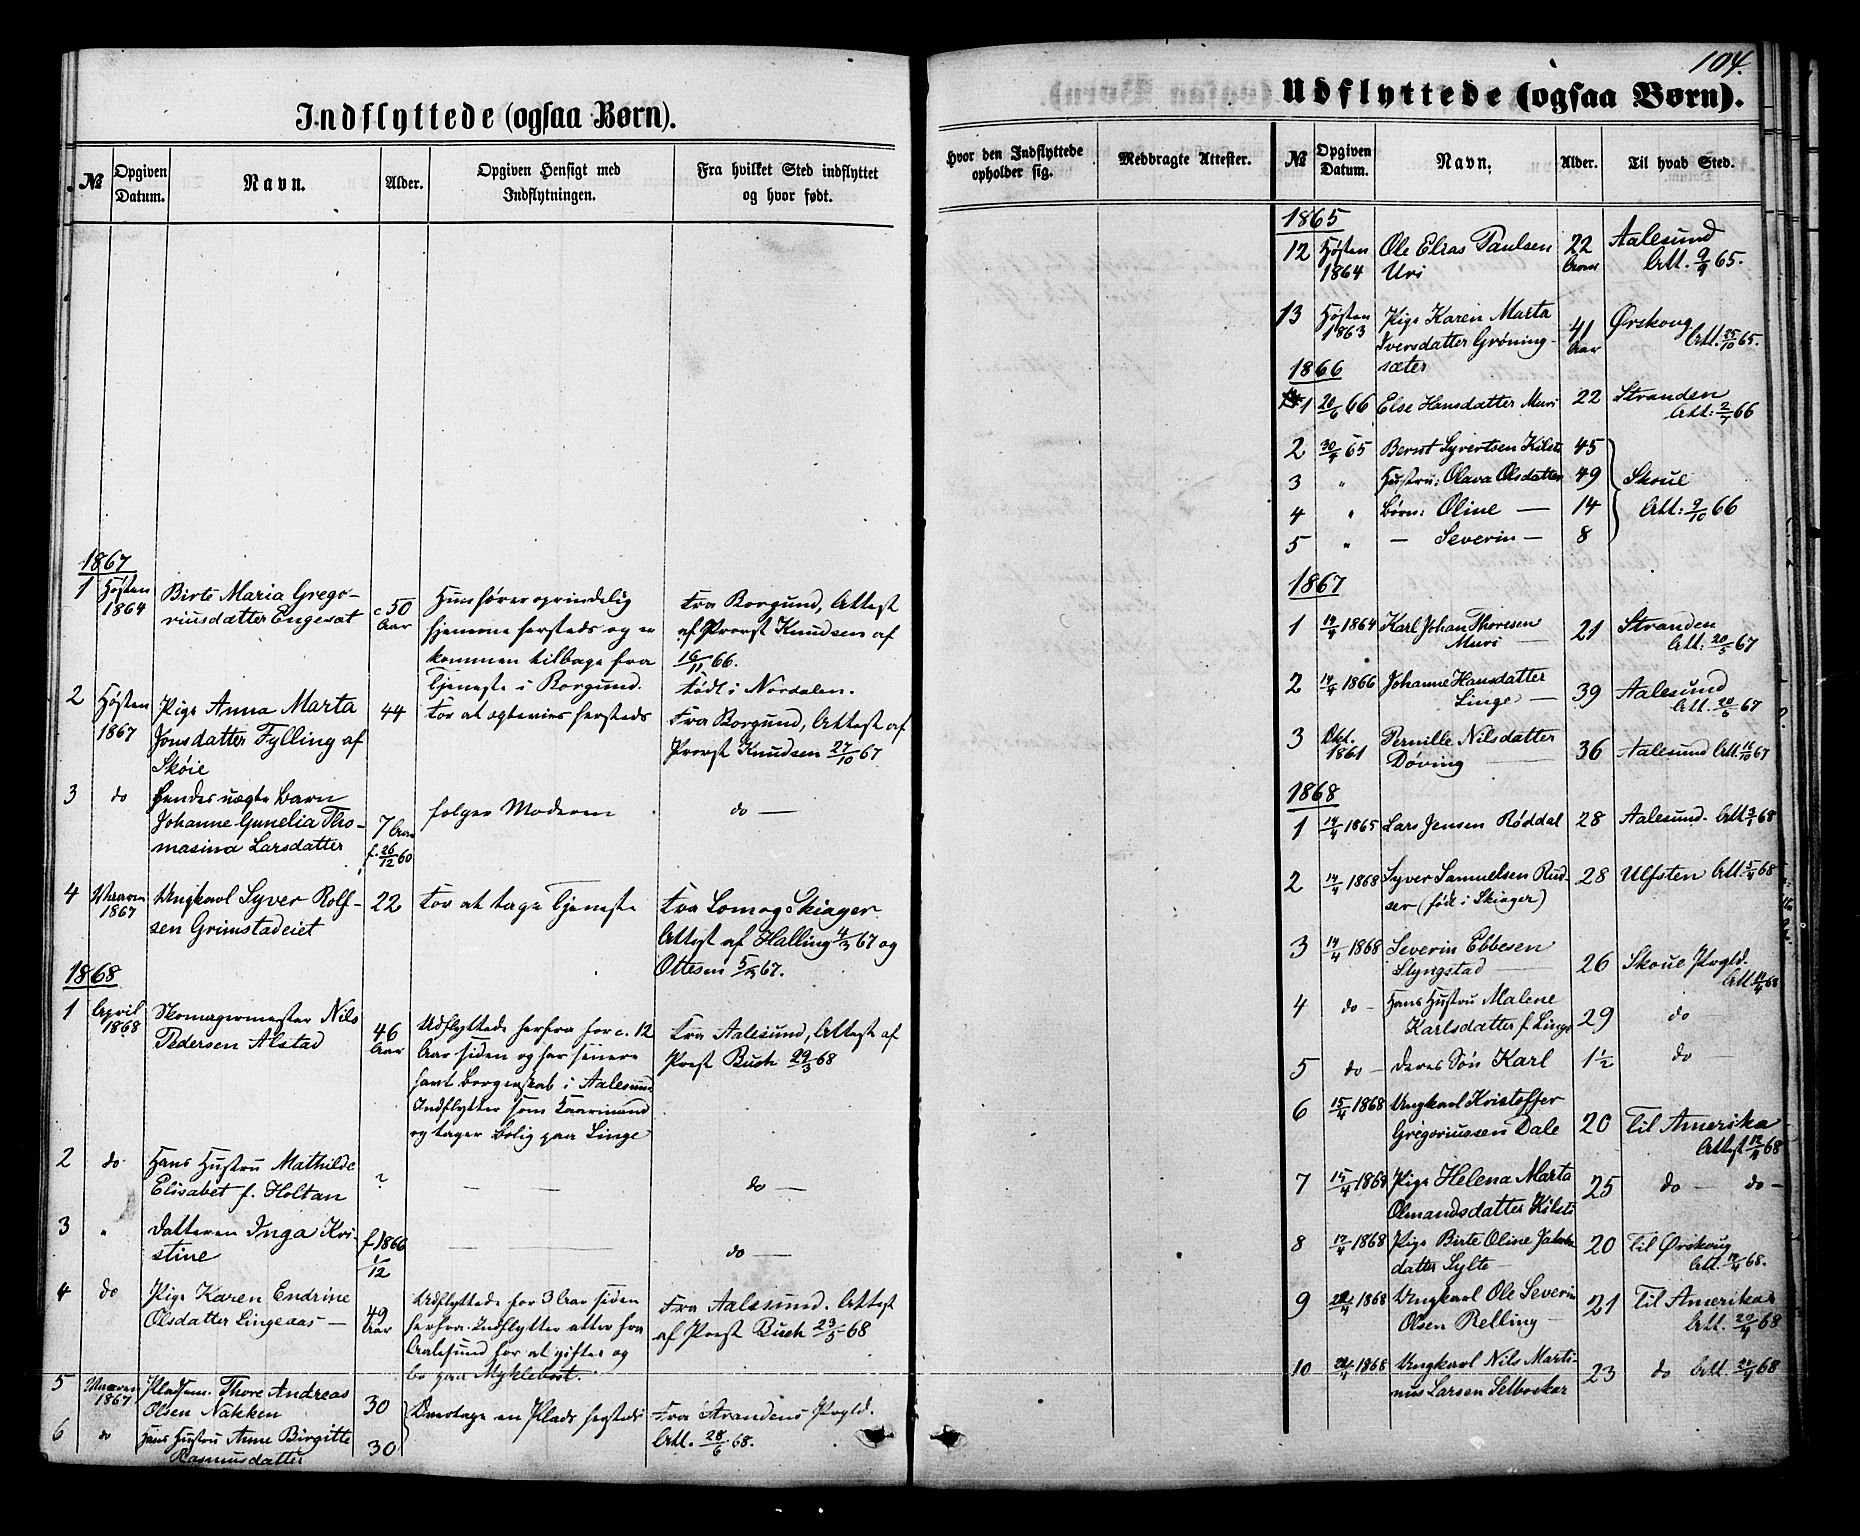 Indflyttede (ogsaa Børn).
№
Opgiven Datum.
Navn.
Alder.
Opgiven Hensigt med Indflytningen.
Fra hvilket Sted indflyttet og hvor født.
1867
1 Høsten Birte Maria Grego- c. 50 Hun hører oprindelig Fra Borgund, Attest
1864 riusdatter Engeset Aar hjemme hersteds og er af Provst Knudsen af
kommen tilbage fra 16/11 66.
Tjeneste i Borgund. Født i Nordalen.
2 Høsten Pige Anna Marta 44 For at ægtevies hersteds Fra Borgund, Attest af
1867 Jonsdatter Fylling af Provst Knudsen 27/10 67
Skøie
3 do Hendes uægte Barn
Johanne Gunelia Tho- 7 Aar følger Moderen do —
masina Larsdatter f. 26/12 60
4 Vaaren Ungkarl Syver Rolf- 22 For at tage Tjeneste Fra Lom og Skiager
1867 sen Grimstadeiet Attest af Halling 4/3 67 og
Ottesen 5/3 67.
1868
1 April Skomagermester Nils 46 Udflyttede herfra for c. 12 Fra Aalesund, Attest af
1868 Pedersen Alstad Aar Aar siden og har senere Prest Buch 29/3 68
havt Borgerskab i Aalesund.
Indflytter som Kaarmand
og tager bolig paa Linge
2 do Hans Hustru Mathilde ? — — do —
Elisabet f. Holtan
3 " Datteren Inga Kri- f. 1866 — — do —
stine 1/12
4 do Pige Karen Endrine 49 Udflyttede for 3 Aar siden Fra Aalesund. Attest
Olsdatter Lingeaas — Aar herfra. Indflytter atter fra af Prest Buch 23/5 68
Aalesund for at giftes og
bo paa Myklebost.
5 Vaaren Pladsm. Thore Andreas 30 Overtage en Plads hersteds Fra Strandens Prgld.
1867 Olsen Nakken Att. 28/6 68.
6 do Hans Hustru Anne Birgitte 30
Rasmusdatter
104.
Udflyttede (ogsaa Børn).
Hvor den Indflyttede opholder sig.
Medbragte Attester.
№
Opgiven Datum.
Navn.
Alder.
Til hvad Sted.
1865
12 Høsten Ole Elias Paulsen 22 Aalesund
1864 Uri Aar Att. 9/9 65.
13 Høsten Pige Karen Marta Ørskoug
1863 Iversdatter Grøning- 41 Aar Att. 25/10 65.
1866 sæter
1 20/6 66 Else Hansdatter Muri 22 Stranden
Att: 2/7 66
2 30/4 65 Bernt Syvertsen Kilsti 45
3 " Hustru: Olava Olsdatter 49 Skoue
4 " Børn: Oline — 14 Att: 9/10 66
5 " — Severin — 8
1867
1 14/4 1864 Karl Johan Thoresen 21 Stranden
Muri Att: 20/5 67
2 14/4 1866 Johanne Hansdatter 39 Aalesund
Linge — Att. 20/6 67
3 Okt. Pernille Nilsdatter 36 Aalesund Att. 16/10 67
1861 Døving —
1868
1 14/4 1865 Lars Jensen Røddal 28 Aalesund. Att 3/1 68
2 14/4 1868 Syver Samuelsen Rud- 28 Ulfsten Att. 5/4 68
ser (født i Skiager)
3 14/4 1868 Severin Ebbesen 26 Skoue Prgld.
Slyngstad — Att. 14/4 68
4 do — Hans Hustru Malene 29 do —
Karlsdatter f. Linge
5 do — Deres Søn Karl 1½ do —
6 15/4 1868 Ungkarl Kristoffer 20 Til Amerika
Gregoriussen Dale Attest 12/4 68
7 15/4 1868 Pige Helena Marta 25 do — do —
Olmandsdatter Kilsti
8 14/4 1868 Pige Birte Oline Jakobs 20 Til Ørskoug
datter Sylte — Att. 14/4 68.
9 22/4 1868 Ungkarl Ole Severin 21 Til Amerika
Olsen Relling — Att. 20/4 68
10 22/4 1868 Ungkarl Nils Marti- 23 do Att. 21/4 68
nus Larsen Selboskar